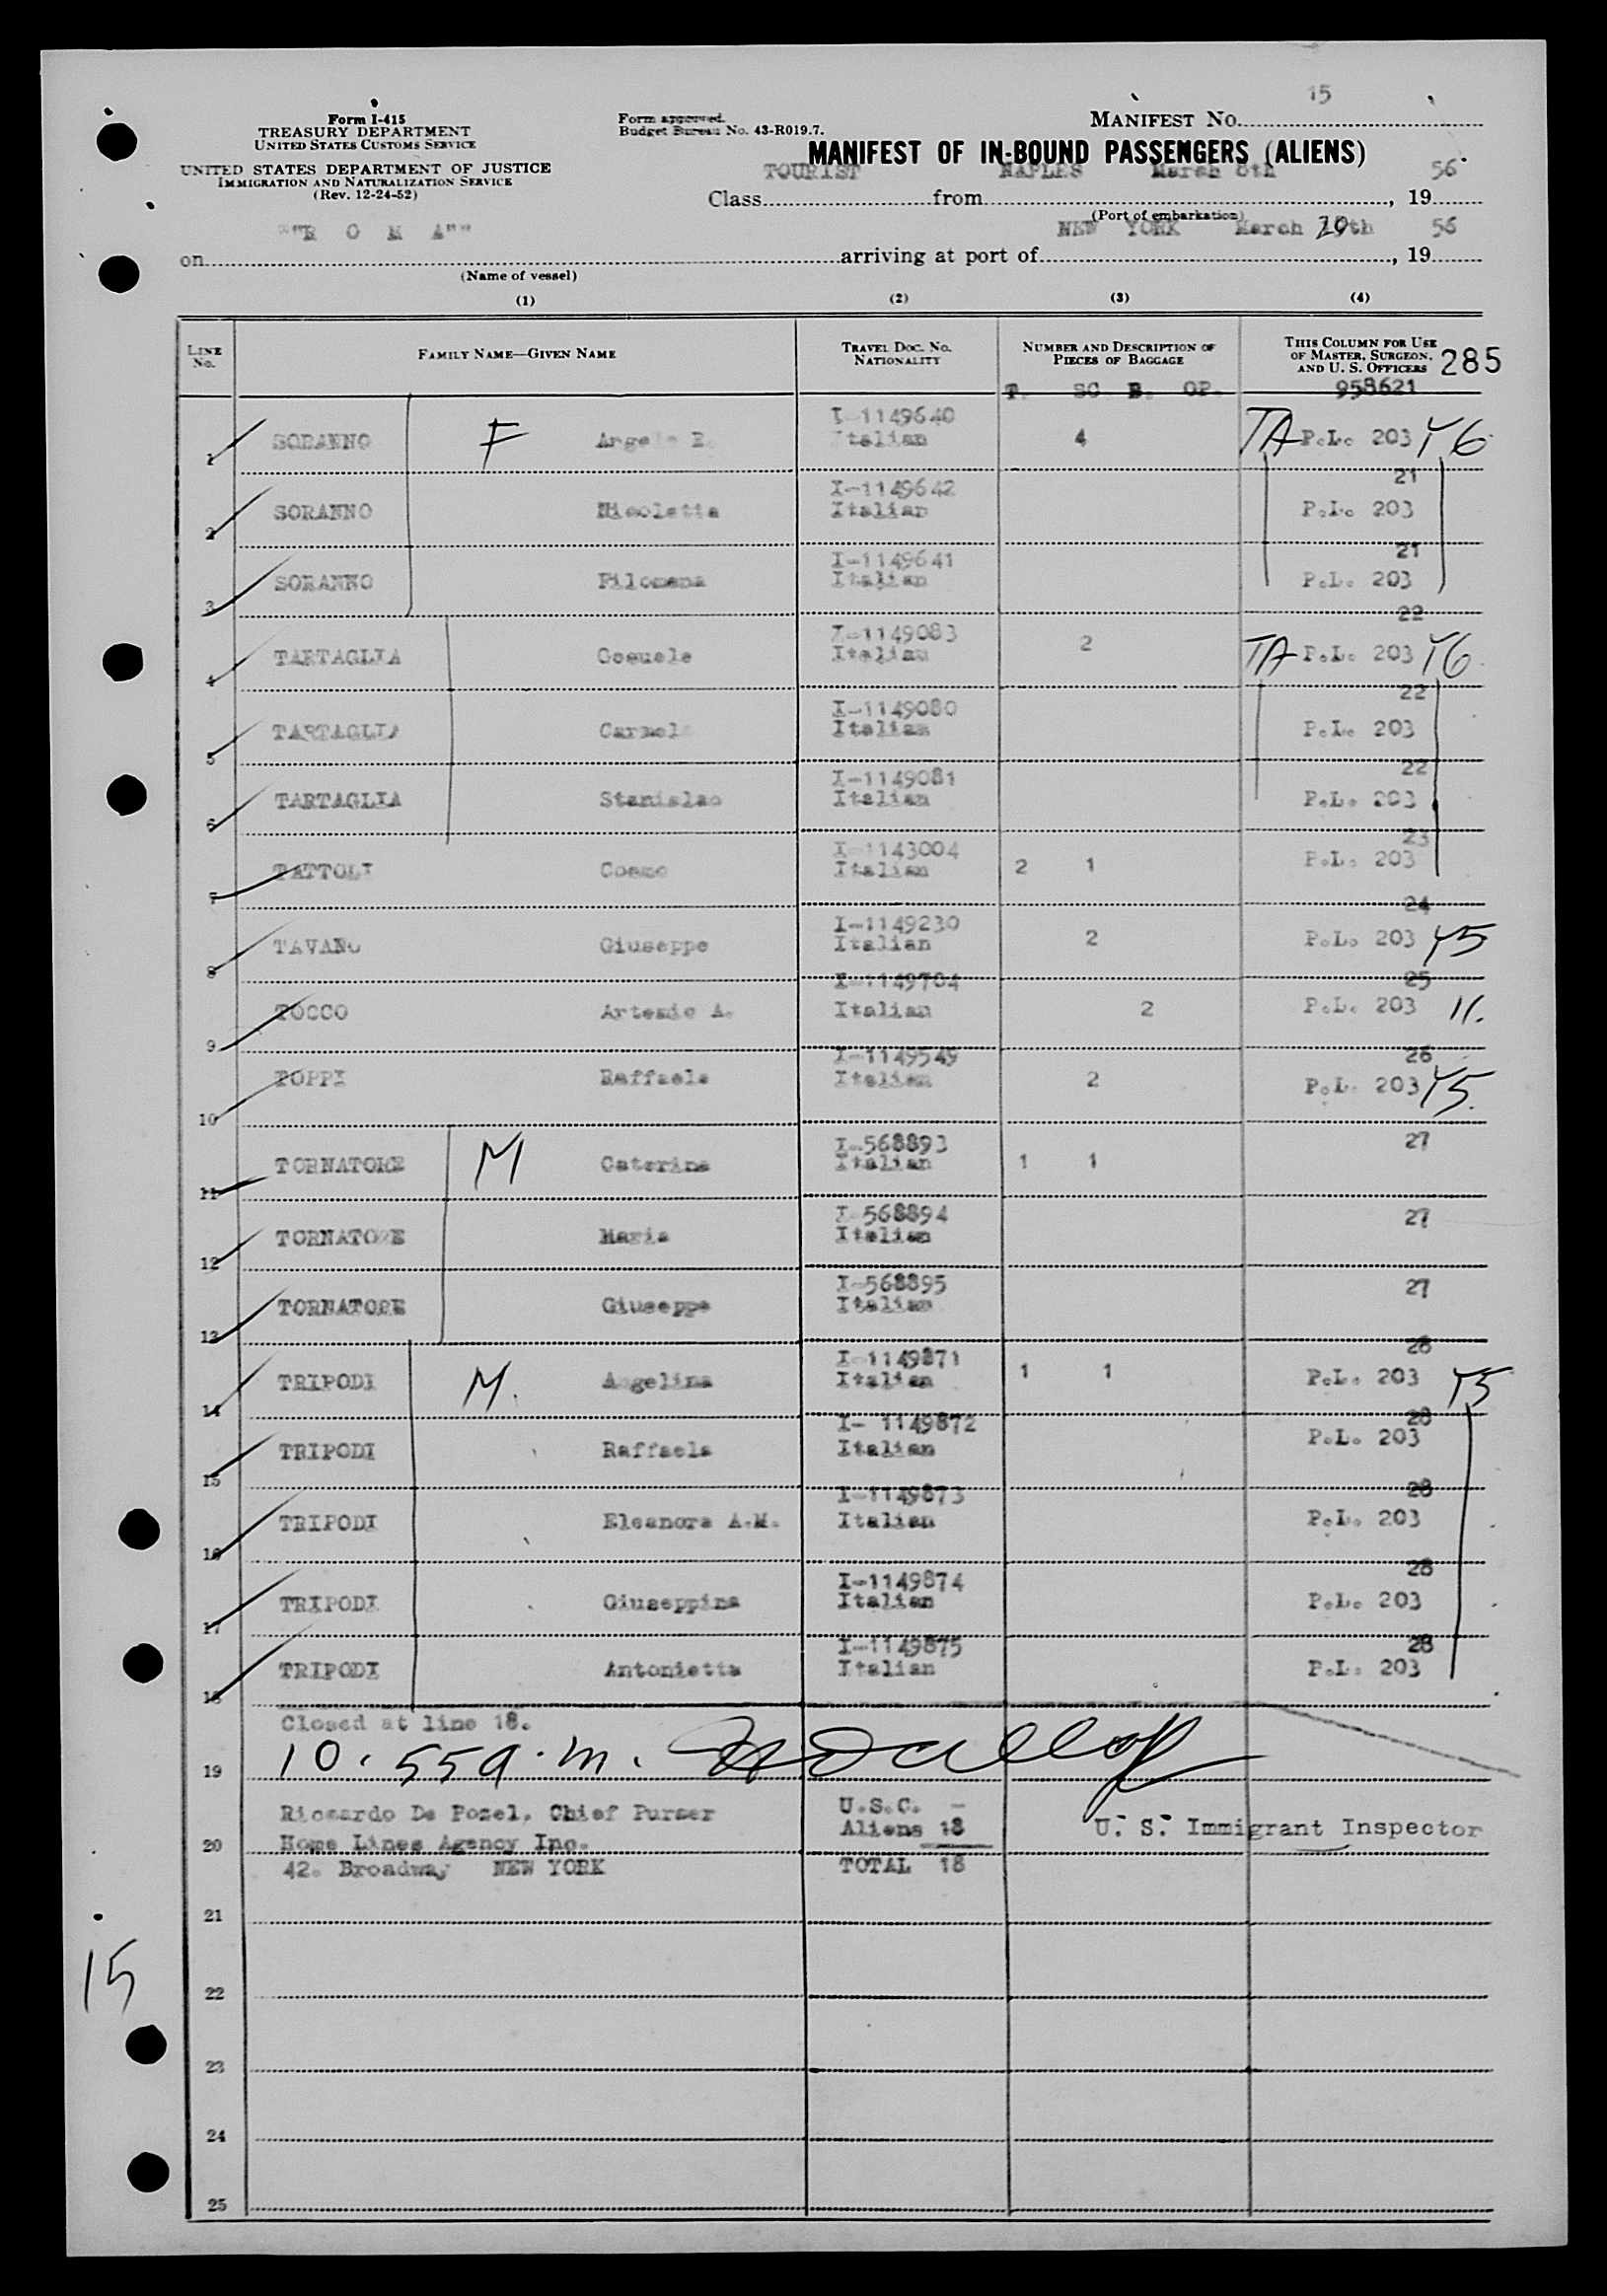 15
Form I-415
TREASURY DEPARTMENT
UNITED STATES CUSTOMS SERVICE
UNITED STATES DEPARTMENT OF JUSTICE
IMMIGRATION AND NATURALIZATION SERVICE
(Rev. 12-24-52)
Form approved.
Budget Bureau No. 43-R019.7.
MANIFEST No.
MANIFEST OF IN-BOUND PASSENGERS (ALIENS)
TOURIST NAPLES March 8th 56
Class from , 19
(Port of embarkation)
""R O M A"" NEW YORK March 20th 56
on arriving at port of , 19
(Name of vessel)
(1) (2) (3) (4)
LINE No. FAMILY NAME—GIVEN NAME TRAVEL DOC. NO. NATIONALITY NUMBER AND DESCRIPTION OF PIECES OF BAGGAGE THIS COLUMN FOR USE OF MASTER, SURGEON, AND U. S. OFFICERS 285
T. SC B. OP. 958621
I-1149640
1 SORANNO F Italian 4 TA P.L. 203 Y6
21
I-1149642
2 SORANNO Nicoletta Italian P.L. 203
21
I-1149641
3 SORANNO Filomena Italian P.L. 203
22
I-1149083
4 TARTAGLIA Italian 2 TA P.L. 203 Y6
22
I-1149080
5 TARTAGLIA Carmela Italian P.L. 203
22
I-1149081
6 TARTAGLIA Stanislao Italian P.L. 203
23
I-1143004
7 TATTOLI Cosmo Italian 2 1 P.L. 203
24
I-1149230
8 TAVANO Giuseppe Italian 2 P.L. 203 Y5
I-1149704 25
9 TOCCO Artemio A. Italian 2 P.L. 203 11.
I-1149549 26
10 TOPPI Raffaele Italian 2 P.L. 203 Y5.
I-568893 27
11 TORNATORE M Caterina Italian 1 1
I-568894 27
12 TORNATORE Maria Italian
I-568895 27
13 TORNATORE Giuseppe Italian
28
I-1149871
14 TRIPODI M. Angelina Italian 1 1 P.L. 203 Y5
I- 1149872 28
15 TRIPODI Raffaela Italian P.L. 203
I-1149873 28
16 TRIPODI Eleanora A.M. Italian P.L. 203
I-1149874 28
17 TRIPODI Giuseppina Italian P.L. 203
I-1149875 28
18 TRIPODI Antonietta Italian P.L. 203
Closed at line 18.
19 10.55 a.m.
Riccardo De Pozel, Chief Purser U.S.C. -
20 Home Lines Agency Inc. Aliens 18 U. S. Immigrant Inspector
42. Broadway NEW YORK TOTAL 18
21
15
22
23
24
25